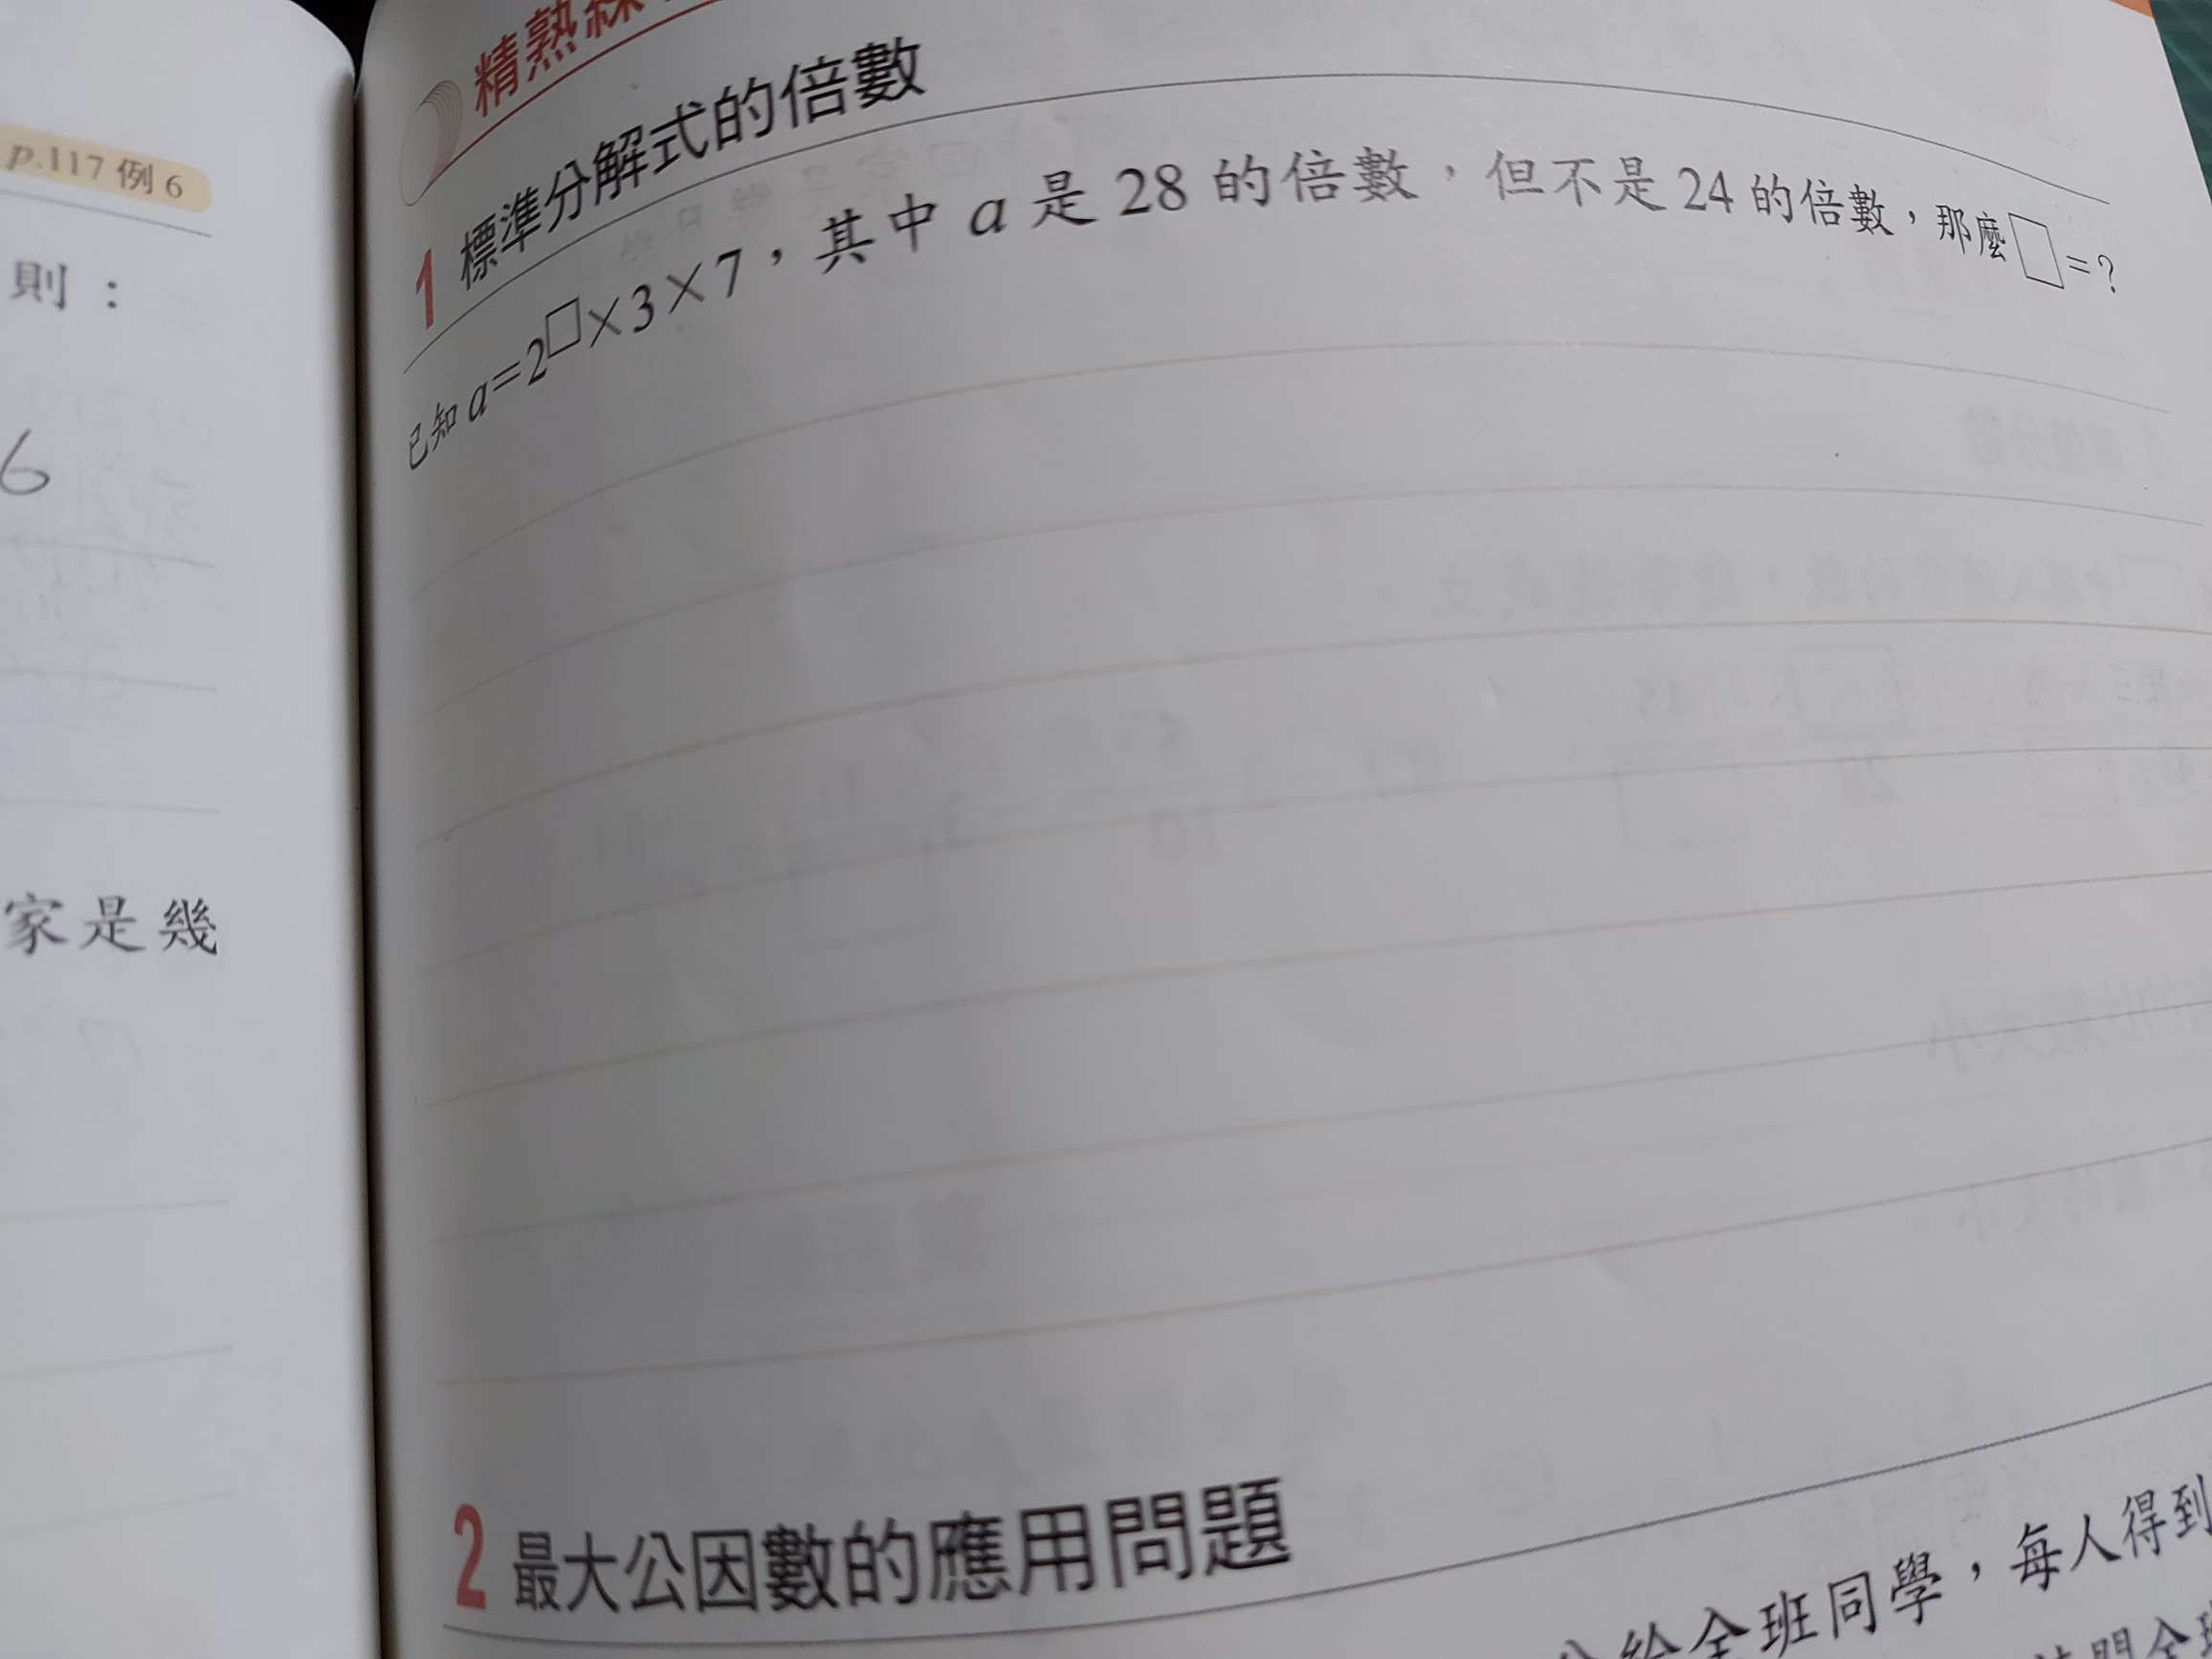 p.117 例 6
則：
6
家是幾
精熟練
1 標準分解式的倍數
已知 a=2□×3×7，其中 a 是 28 的倍數，但不是 24 的倍數，那麼□=?
2 最大公因數的應用問題
給全班同學，每人得到